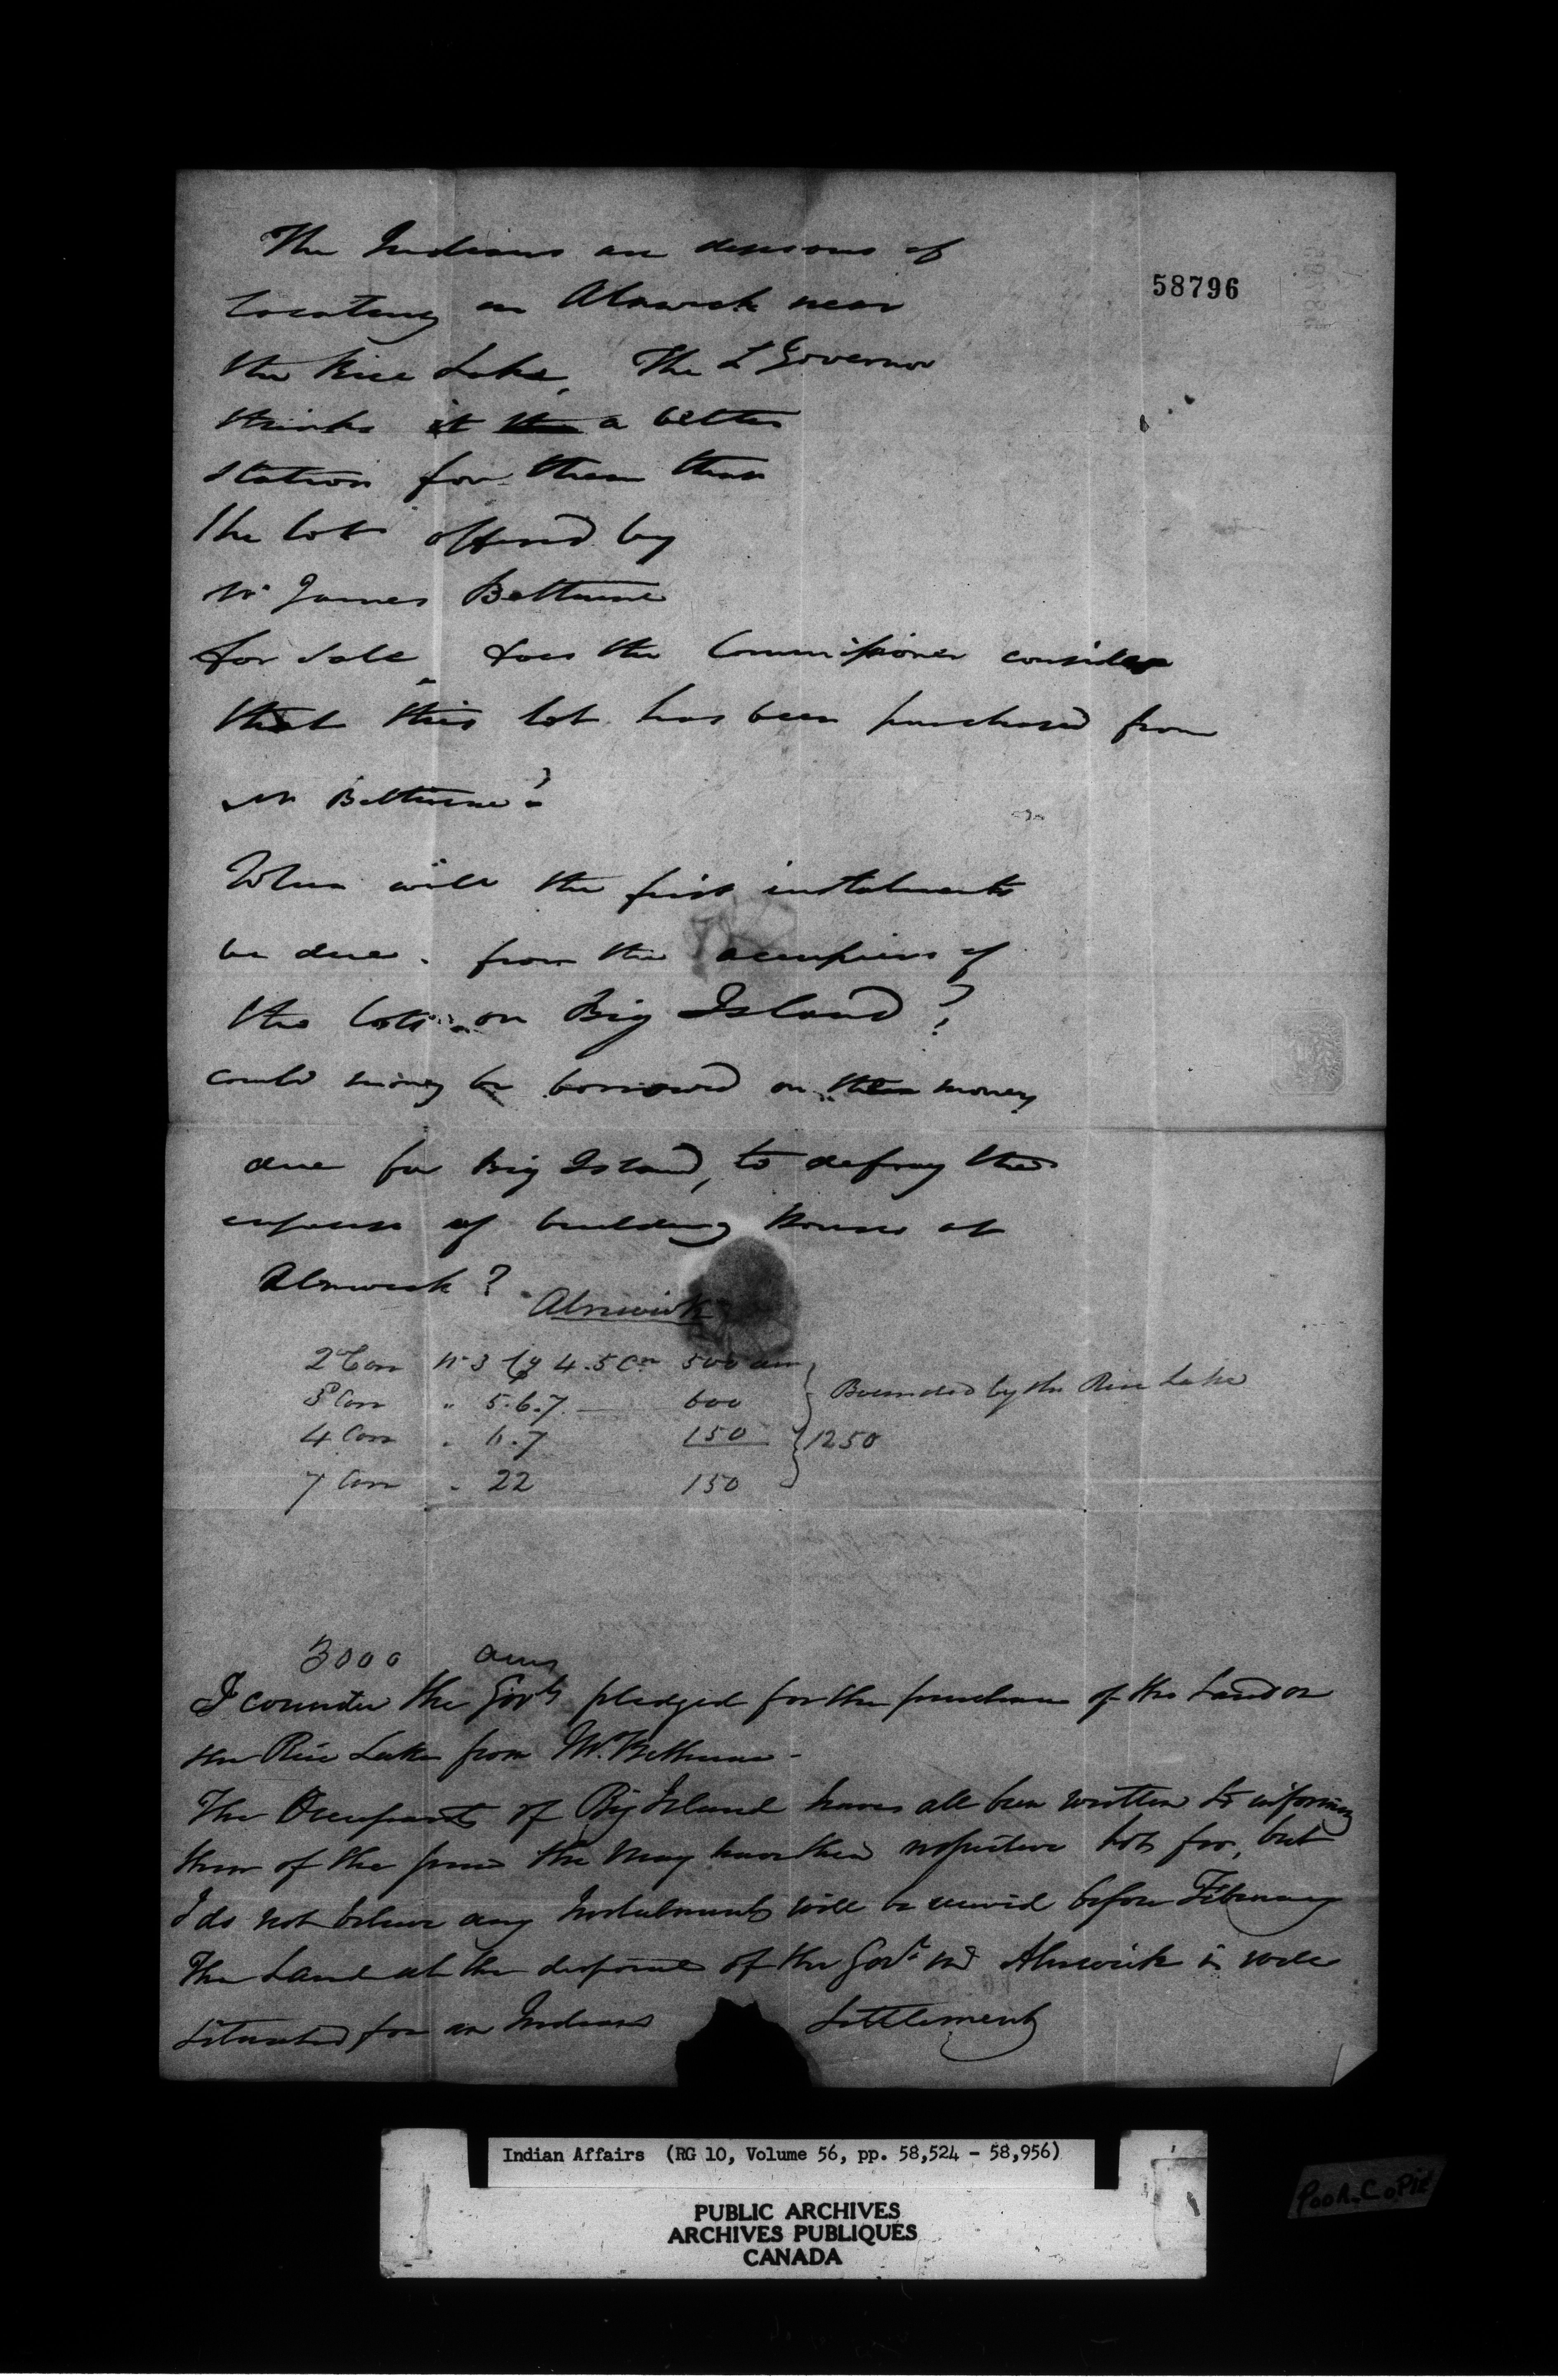 58796
The Indians are desirous of
locating in Alnwick near
the Rice Lake, The L Governor
thinks it a better
station for them than
the lot offered by
Mr James Bettune
for sale does the Commissioner consider
that this lot has been purchased from
Mr Bettune?
When will the first instalments
be due. from the occupiers of
the lots on Big Island?
could money be borrowed on the money
due for Big Island, to defray the
expense of building Houses at
Alnwick?
Alnwick
2d Con No 3 4.5 500
3d Con " 5.6.7 600 Bounded by the Rice Lake
4 Con " 6.7 150 1250
7 Con " 22 150
3000 acres
I consider the Govt pledged for the purchase of the Land on
the Rice Lake from Mr. Bethune -
The Occupants of Big Island have all been written to informing
them of the price the may have their respective lots for, but
I do not believe any Instalments will be received before February
The Land at the disposal of the Govt in Alnwick is well
situated for an Indian Settlement
Indian Affairs (RG 10, Volume 56, pp. 58,524 - 58,956)
PUBLIC ARCHIVES
ARCHIVES PUBLIQUES
CANADA
POOR.COPIE